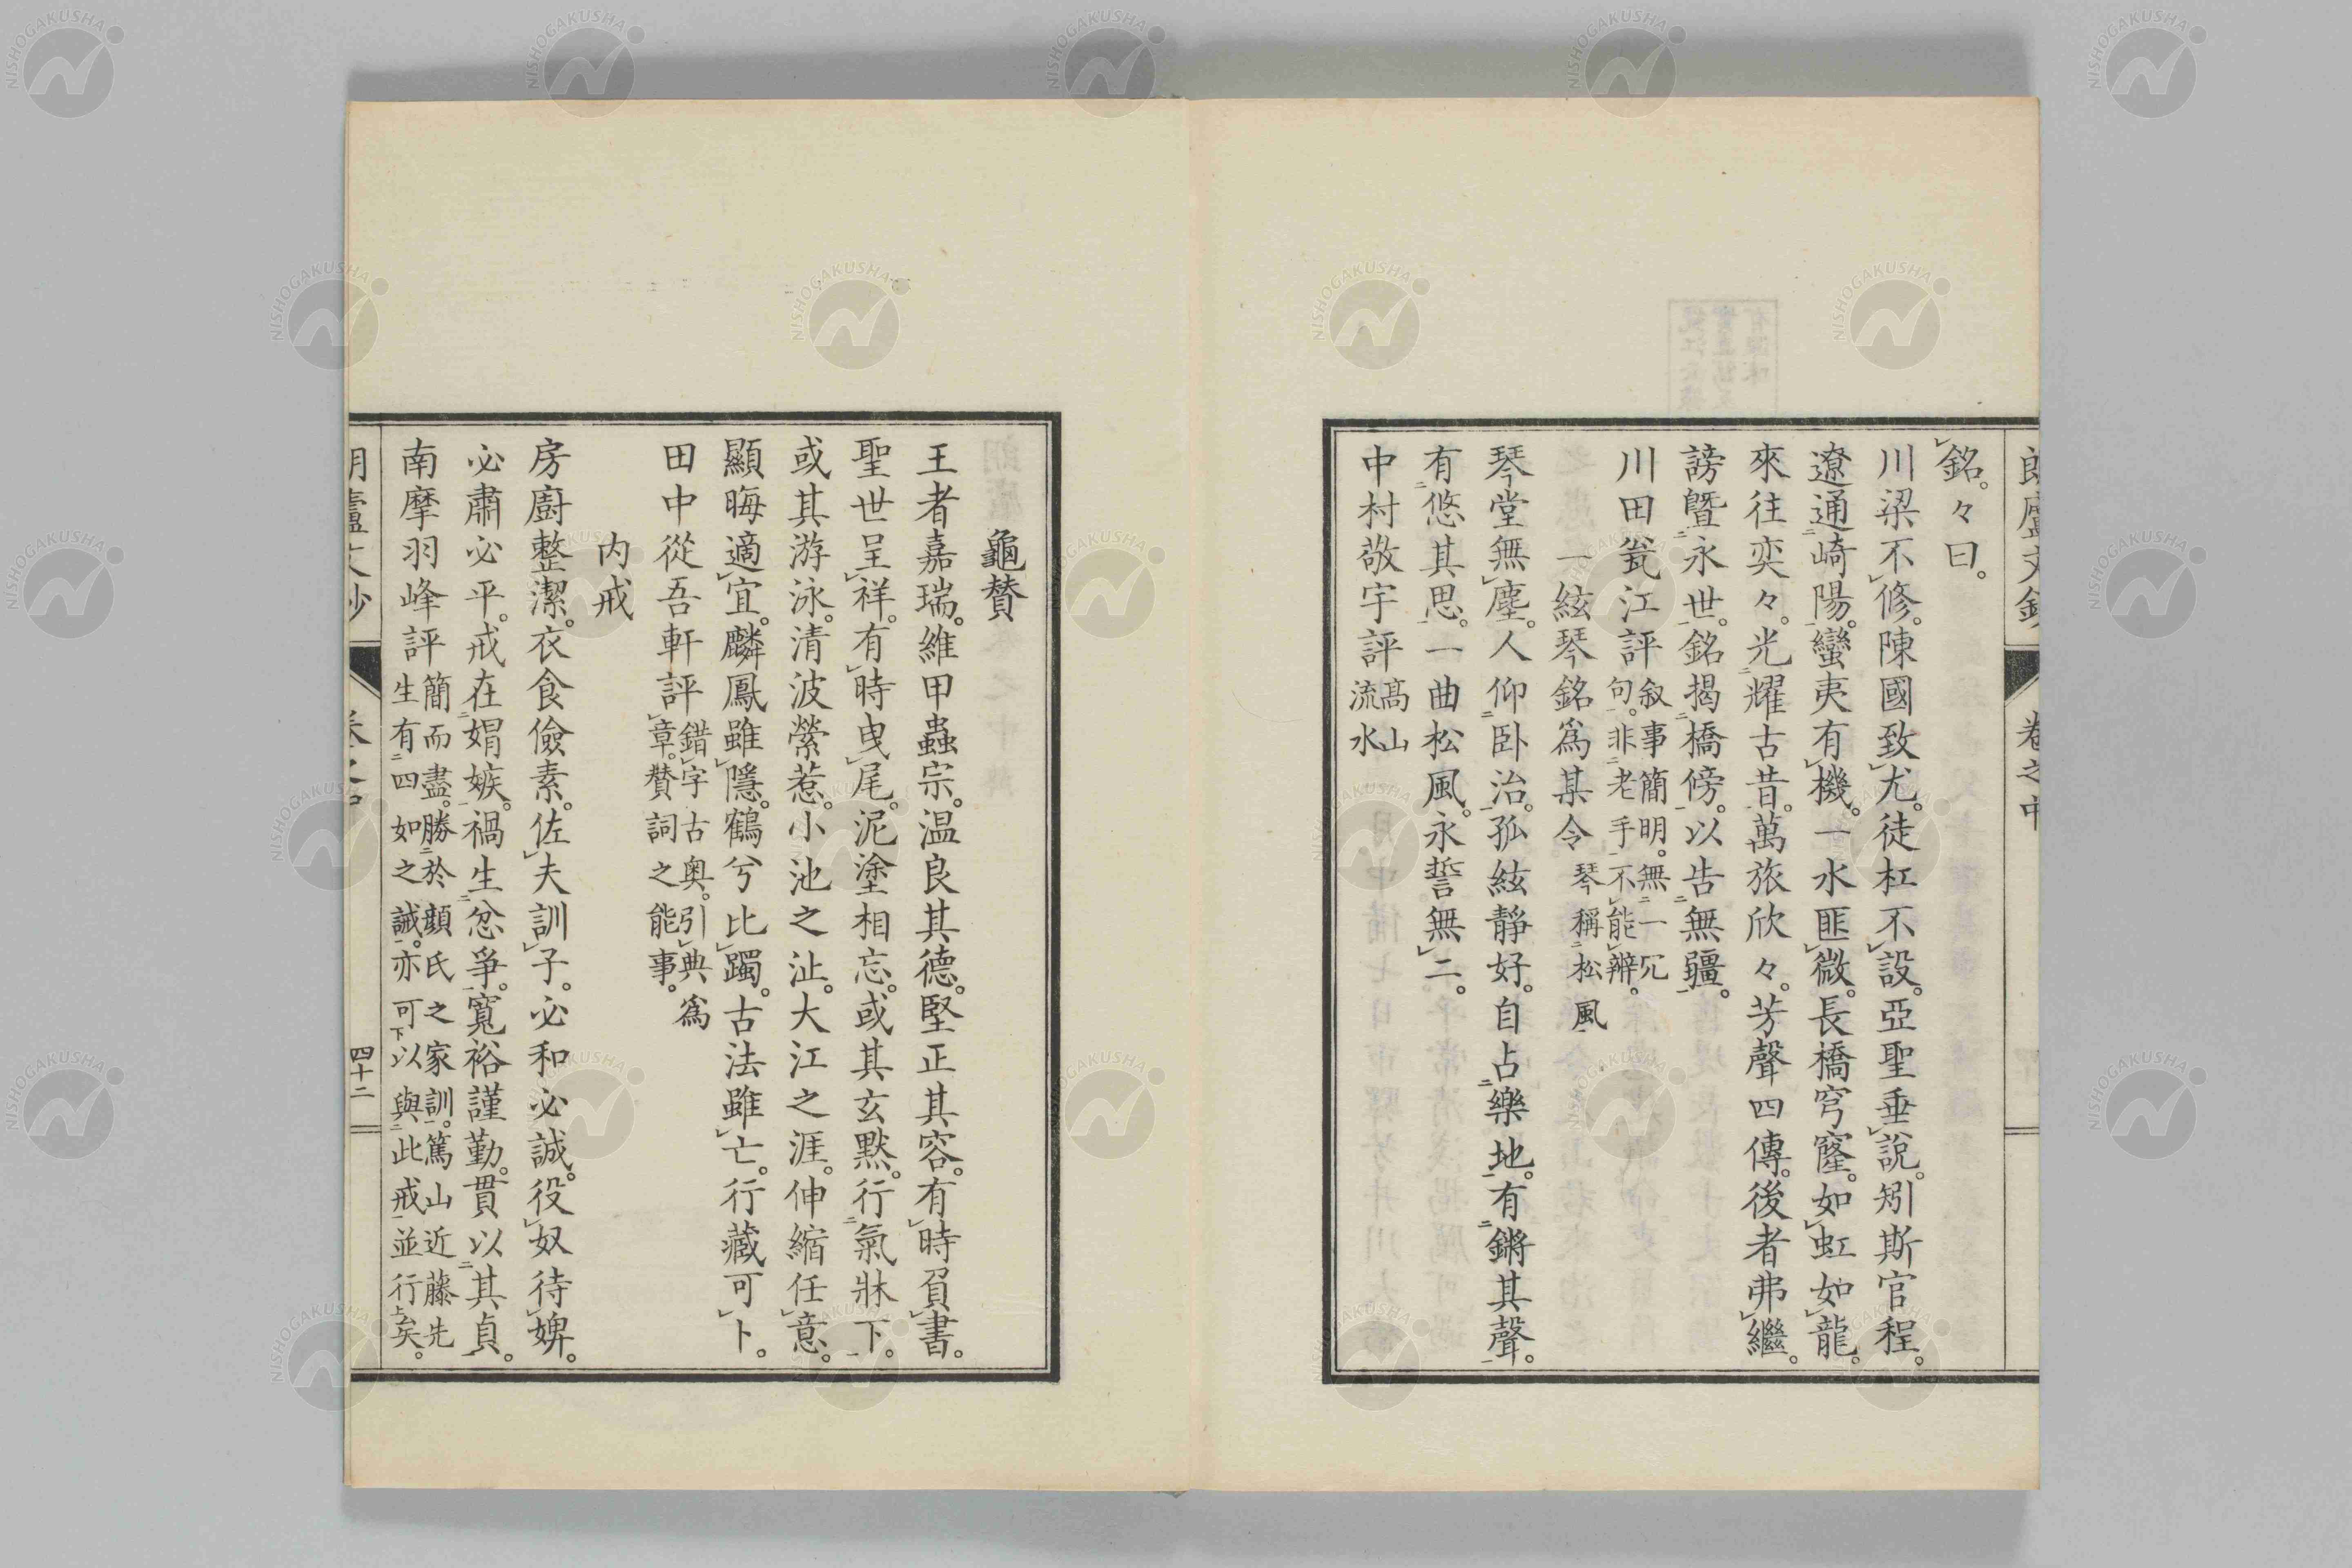 銘。々曰。
川梁不修。陳國致尤。徒杠不設。亞聖垂說。矧斯官程。
遼通崎陽。蠻夷有機。一水匪微。長橋穹窿。如虹如龍。
來往奕々。光耀古昔。萬旅欣々。芳聲四傳。後者弗繼。
謗曁永世。銘揭橋傍。以告無疆。
川田甕江評 叙事簡明。無一冗句。非老手不能辨。
一絃琴銘爲某令 琴稱松風
琴堂無塵。人仰卧治。孤絃靜好。自占樂地。有鏘其聲。
有悠其思。一曲松風。永誓無二。
中村敬宇評 高山流水
龜賛
王者嘉瑞。維甲蟲宗。温良其德。堅正其容。有時負書。
聖世呈祥。有時曳尾。泥塗相忘。或其玄默。行氣牀下。
或其游泳。清波縈惹。小池之沚。大江之涯。伸縮任意。
顯晦適宜。麟鳳雖隱。鶴兮比躅。古法雖亡。行藏可卜。
田中從吾軒評 錯字古奥。引典爲章。賛詞之能事。
内戒
房廚整潔。衣食儉素。佐夫訓子。必和必誠。役奴待婢。
必肅必平。戒在娟嫉。禍生忿爭。寬裕謹勤。貫以其貞。
南摩羽峰評 簡而盡。勝於顔氏之家訓。篤山近藤先生有四如之誡。亦可以與此戒並行矣。
四十二